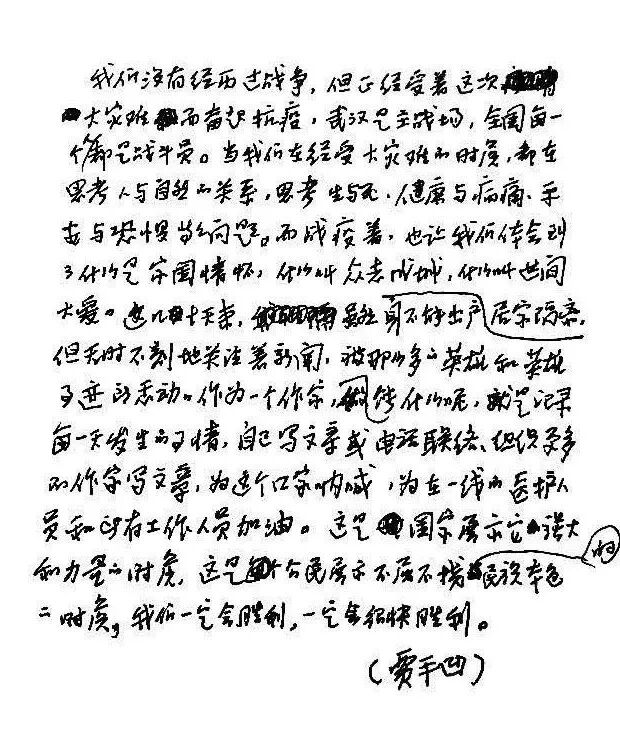 我们没有经历过战争，但正经受着这次
大灾难而奋起抗疫，武汉是主战场，全国每一
个都是战斗员。当我们在经受大灾难的时候，都在
思考人与自然的关系，思考生与死、健康与病痛、平
安与恐惧等问题。而战疫着，也让我们体会到
了什么是家国情怀，什么叫众志成城，什么叫世间
大爱。这几十天来，虽然身不能出户居家隔离，
但无时不刻地关注着新闻，被那么多的英雄和英雄
事迹所感动。作为一个作家，能做什么呢，就是记录
每一天发生的事情，自己写文章或电话联络、组织更多
的作家写文章，为这个国家呐喊，为在一线的医护人
员和所有工作人员加油。这是国家展示它的强大
和力量的时候，这是每个公民展示不屈不挠的民族本色
的时候，我们一定会胜利，一定会很快胜利。
（贾平凹）